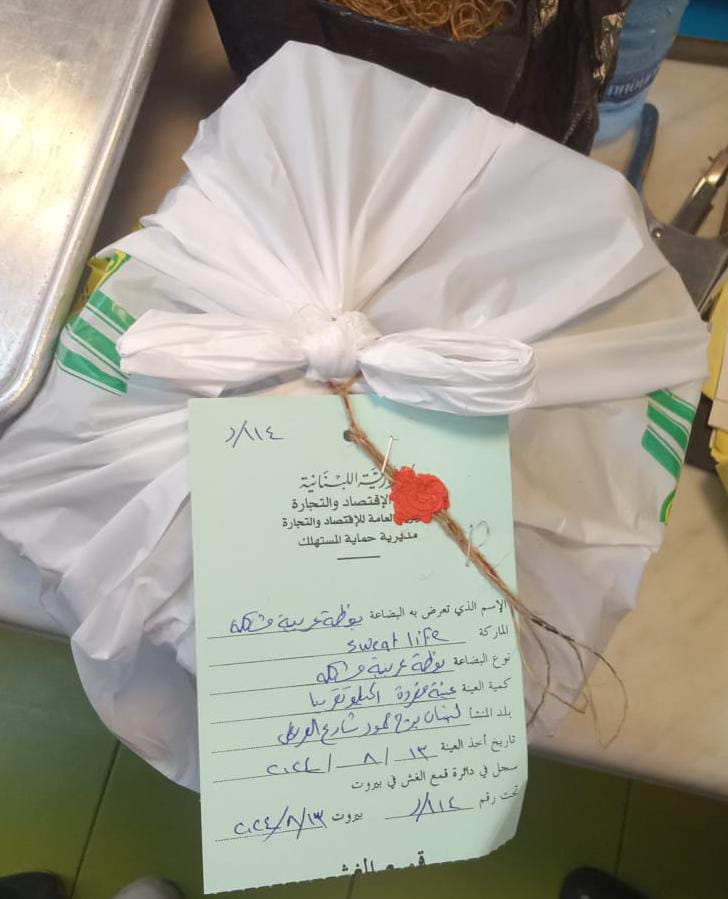 ١١٤/د
رية اللبنانية
الإقتصاد والتجارة
العامة للإقتصاد والتجارة
مديرية حماية المستهلك
الإسم الذي تعرض به البضاعة بوظة عربية مشكلة
الماركة sweat life
نوع البضاعة بوظة عربية مشكلة
كمية العينة عينة مفردة ١كيلو تقريبا
بلد المنشأ لبنان برج حمود شارع العريض
تاريخ أخذ العينة ١٣ / ٨ / ٢٠٢٤
سجل في دائرة قمع الغش في بيروت
تحت رقم ١١٤/د بيروت ٢٠٢٤/٨/١٣
قمع الغش